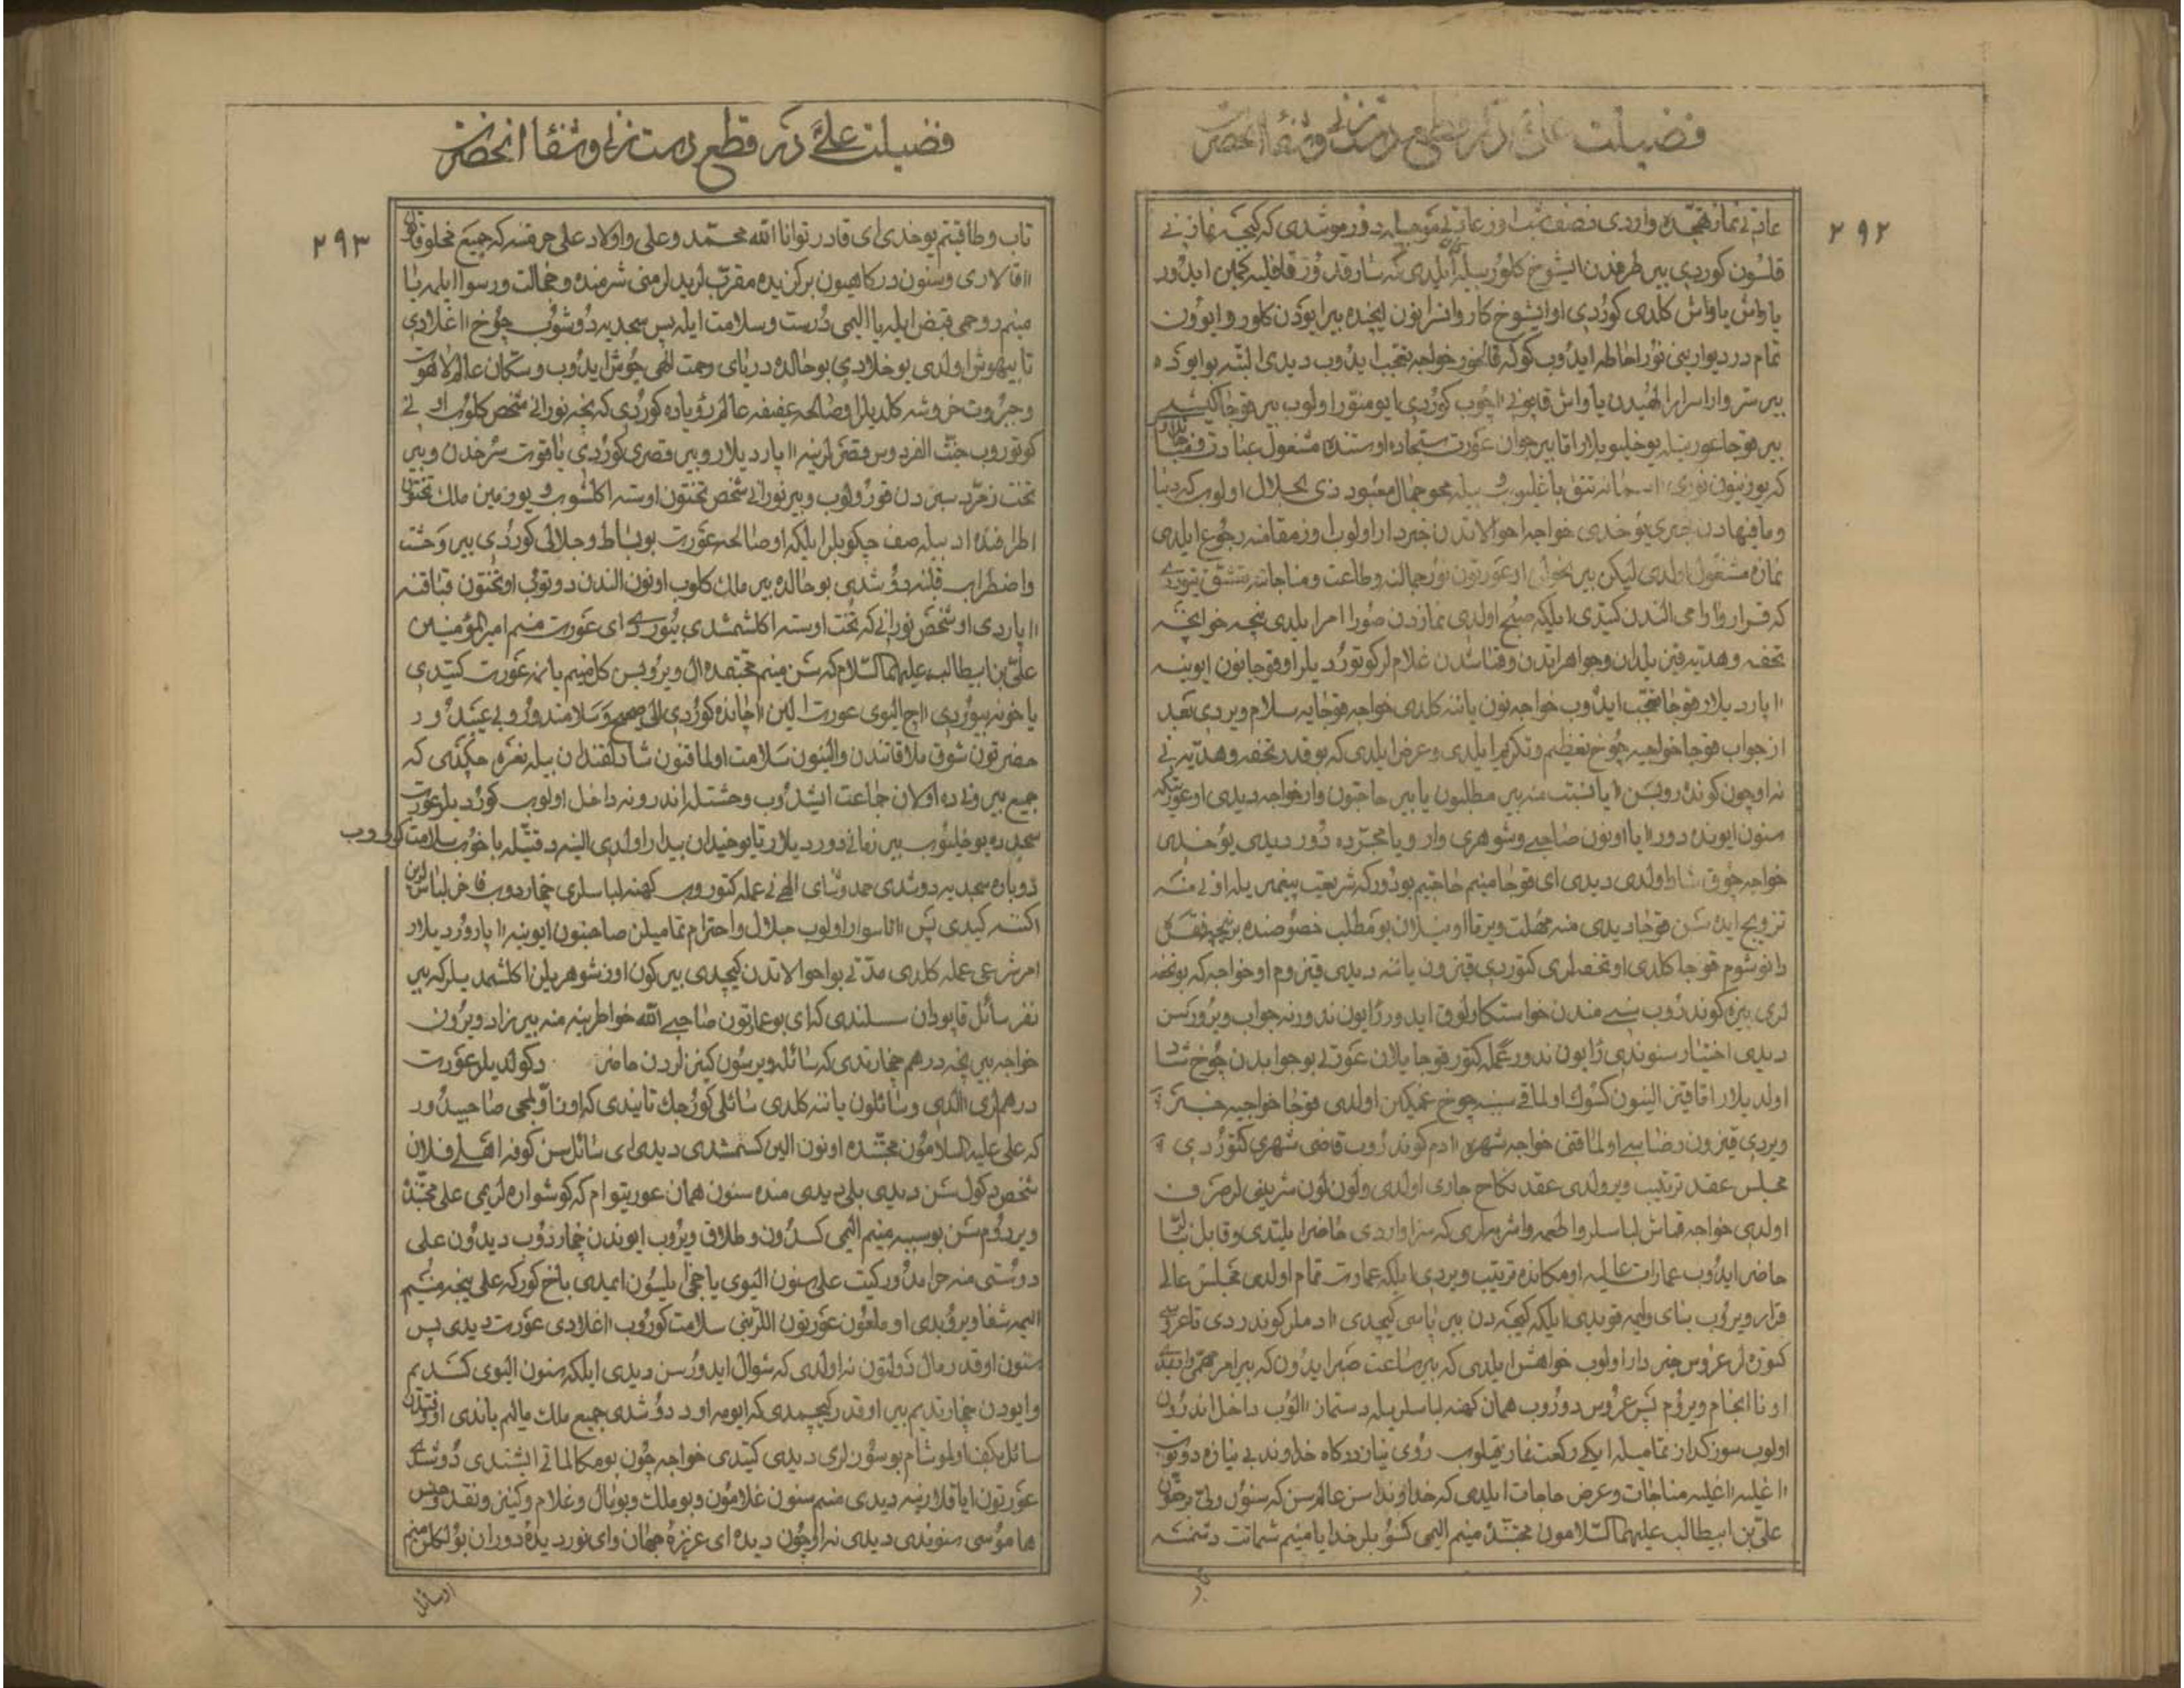 فضیلت علی در قطع دست زنی و شفا انحضرت
۲۹۲
عادتی نماز تهجده واردی نصف شب اوز عادتی موجبله دورموشدی که کیجه نمازنی
قلسون کوردی بیر طرفدن ایشوخ کلور بیله ایلدی که سارقدور قافلیه کمین ایدور
یاواش یاواش کلدی کوردی او ایشوخ کاروانسرانون ایچنده بیر ایودن کلور و ایوون
تمام در دیوارینی نور احاطه ایدوب کوکه قالخور خواجه تعجب ایدوب دیدی البته بو ایوده
بیر سر وار اسرار الهیدن یاواش قاپونی اچوب کوردی ایو منور اولوب بیر قوجا کیشی
بیر قوجا عورتیله یوخلیوبلار اما بیر جوان عورت سجاده اوستنده مشغول عبادتدی
که یوزینون نوری اسمانه تتق باغلیوب و بیله محو جمال معبود ذی الجلال اولوب که دنیا
ومافیهادن خبری یوخدی خواجه احوالاتدن خبردار اولوب اوز مقامنه رجوع ایلدی
نمازه مشغول اولدی لیکن بیر نحوایله او عورتون نور جمالنه و طاعت و مناجاتنه عشق یتوردی
که قرار و ارامی الندن کیتدی ایلکه صبح اولدی نمازدن صورا امر ایلدی نیچه خوانچه
تحفه و هدیه قزیلدان و جواهراتدن و قماشدن غلاملر کوتوردیلر او قوجانون ایوینه
اپاردیلار قوجا تعجب ایدوب خواجه نون یاننه کلدی خواجه قوجایه سلام ویردی بعد
از جواب قوجا خواجیه چوخ تعظیم و تکریم ایلدی و عرض ایلدی که بو قدر تحفه و هدیه نی
نه اوچون کوندروبسن ایا نسبت منه بیر مطلبون یا بیر حاجتون وار خواجه دیدی او عورتکه
سنون ایونده دور ایا اونون صاحبی و شوهری وار و یا مجرده دور دیدی یوخدی
خواجه چوق شاد اولدی دیدی ای قوجا منیم حاجتیم بودورکه شریعت پیغمبریله اونی منه
تزویج ایده سن قوجا دیدی منه مهلت ویر تا اوییلان بو مطلب خصوصنده بر نیچه نقل
دانوشوم قوجا کلدی او تحفه لری کتوردی قیزون یاننه دیدی قیزوم او خواجه که بو تحفه
لری بیزه کوندروب سنی مندن خواستکارلوق ایدور رایون ندور نه جواب ویرورسن
دیدی اختیار سنوندی رایون ندور عمله کتور قوجایلان عورتی بو جوابدن چوخ شاد
اولدیلار اما قیز الینون کسوک اولماقی سببه چوخ غمکین اولدی قوجا خواجیه خبر
ویردی قیزون رضاسی اولماقنی خواجه شهره ادم کوندروب قاضی شهری کتوردی
مجلس عقد ترتیب ویرولدی عقد نکاح جاری اولدی ولون لون شرینی لر صرف
اولدی خواجه قماش لباسلر و اطعمه و اشربه لری که سزاواردی حاضر ایلتدی و قابل بنالر
حاضر ایدوب عمارات عالیه او مکانده ترتیب ویردی ایلکه عمارت تمام اولدی مجلس عالی
قرار ویروب بنای ولیمه قویدی ایلکه کیجه دن بیر پاسی کیچدی ادملر کوندردی تا عروسی
کتوره لر عروس خبردار اولوب خواهش ایلدی که بیر ساعت صبر ایدون که بیر امر مهمی واردی
اونا انجام ویروم پس عروس دوروب همان کهنه لباسلریله دستماز الوب داخل اندرون
اولوب سوز کداز تمامیله ایکی رکعت نماز قیلوب روی نیاز درکاه خداوند بی نیازه دوتوب
اغلیه اغلیه مناجات و عرض حاجات ایلدی که خداوندا سن عالم سن که سنون ولی برحقون
علی بن ابیطالب علیهما السلامون محبتنده منیم الیمی کسوبلر خدایا منیم شماتت دشمنه
تاب
فضیلت علی در قطع دست زنی و شفا انحضرت
۲۹۳
تاب و طاقتم یوخدی ای قادر توانا الله محمد و علی و اولاد علی حرمتنه که جمیع مخلوقاتون
اقالاری و سنون درکاهیون برکزیده مقرب لریدلر منی شرمنده و خجالت و رسوا ایلمه یا
منیم روحمی قبض ایله یا الیمی درست و سلامت ایله پس سجدیه دوشوب چوخ اغلادی
تا بیهوش اولدی یوخلادی بو حالده دریای رحمت الهی جوش ایدوب و سکان عالم لاهوت
و جبروت خروشه کلدیلر او صالحه عفیفه عالم رؤیاده کوردی که نیچه نورانی شخص کلوب اونی
کوتوروب جنت الفردوس قصرلرینه اپاردیلار و بیر قصری کوردی یاقوت سرخدن و بیر
تخت زمرد سبزدن قورولوب و بیر نورانی شخص تختون اوسته اکلشوب و یوز مین ملک تختون
اطرافنده ادبیله صف چکوبلر ایلکه او صالحه عورت بو بساط و جلالی کوردی بیر وحشت
واضطراب قلبنه دوشدی بو حالده بیر ملک کلوب اونون الندن دوتوب او تختون قباقنه
اپاردی او شخص نورانی که تخت اوسته اکلشمشدی بیوردی ای عورت منم امیر المؤمنین
علی بن ابیطالب علیهما السلام که سن منیم محبتمده ال ویروبسن کل منیم یانمه عورت کیتدی
یاخونه بیوردی اچ الیوی عورت الین اچانده کوردی الی صحیح و سلامتدور و بی عیبدور
حضرتون شوق ملاقاتندن و الینون سلامت اولماقنون شادلقندن بیله نعره چکدی که
جمیع بیرونده اولان جماعت ایشدوب وحشتله اندرونه داخل اولوب کوردیلر عورت
سجده ده یوخلیوب بیر زمانی دوردیلار تا یوخیدان بیدار اولدی الینه دقتیله باخوب سلامت کوروب
دوباره سجدیه دوشدی حمد و ثنای الهی نی عمله کتوروب کهنه لباسلری چخاردوب فاخر لباسلرین
اکننه کیدی پس اتا سوار اولوب جلال و احترام تمامیلن صاحبنون ایوینه اپاروردیلار
امر شرعی عمله کلدی مدتی بو احوالاتدن کیچدی بیر کون اوز شوهریلن اکلشمدیلر که بیر
نفر سائل قاپودان سسلندی که ای بو عمارتون صاحبی الله خواطرینه منه بیر زاد ویرون
خواجه بیر نیچه درهم چخارتدی که سائله ویرسون کنیزلردن حاضر دکولدیلر عورت
درهملری الدی و سائلون یاننه کلدی سائلی کورجک تانیدی که اونا اولمجی صاحبیدور
که علی علیه السلامون محبتنده اونون الین کسمشدی دیدی ای سائل سن کوفه اهلی فلان
شخص دکولسن دیدی بلی دیدی منده سنون همان عورتیوام که کوشواره لریمی علی محبتنده
ویردوم سن بو سببه منیم الیمی کسدون و طلاق ویروب ایوندن چخاردوب دیدون علی
دوستی منه حرامدور کیت علی سنون الیوی یاخجی ایلسون ایمدی باخ کور که علی نیجه منیم
الیمه شفا ویروبدی او ملعون عورتون اللرینی سلامت کوروب اغلادی عورت دیدی پس
سنون او قدر مال دولتون نه اولدی که سوال ایدورسن دیدی ایلکه سنون الیوی کسدیم
وایودن چخارتدیم بیر او قدر کیچمدی که ایومه اود دوشدی جمیع ملک مالیم یاندی او وقتدن
سائل بکف اولموشام بو سوزلری دیدی کیتدی خواجه چون بو مکالماتی ایشتدی دوشدی
عورتون ایاقلارینه دیدی منم سنون غلامون و بو ملک و بو مال و غلام و کنیز و نقد و جنس
هاموسی سنوندی دیدی نه اوچون دیدی ای عزیزه جهان وای نور دیده دوران بو کلن منم
او سائل